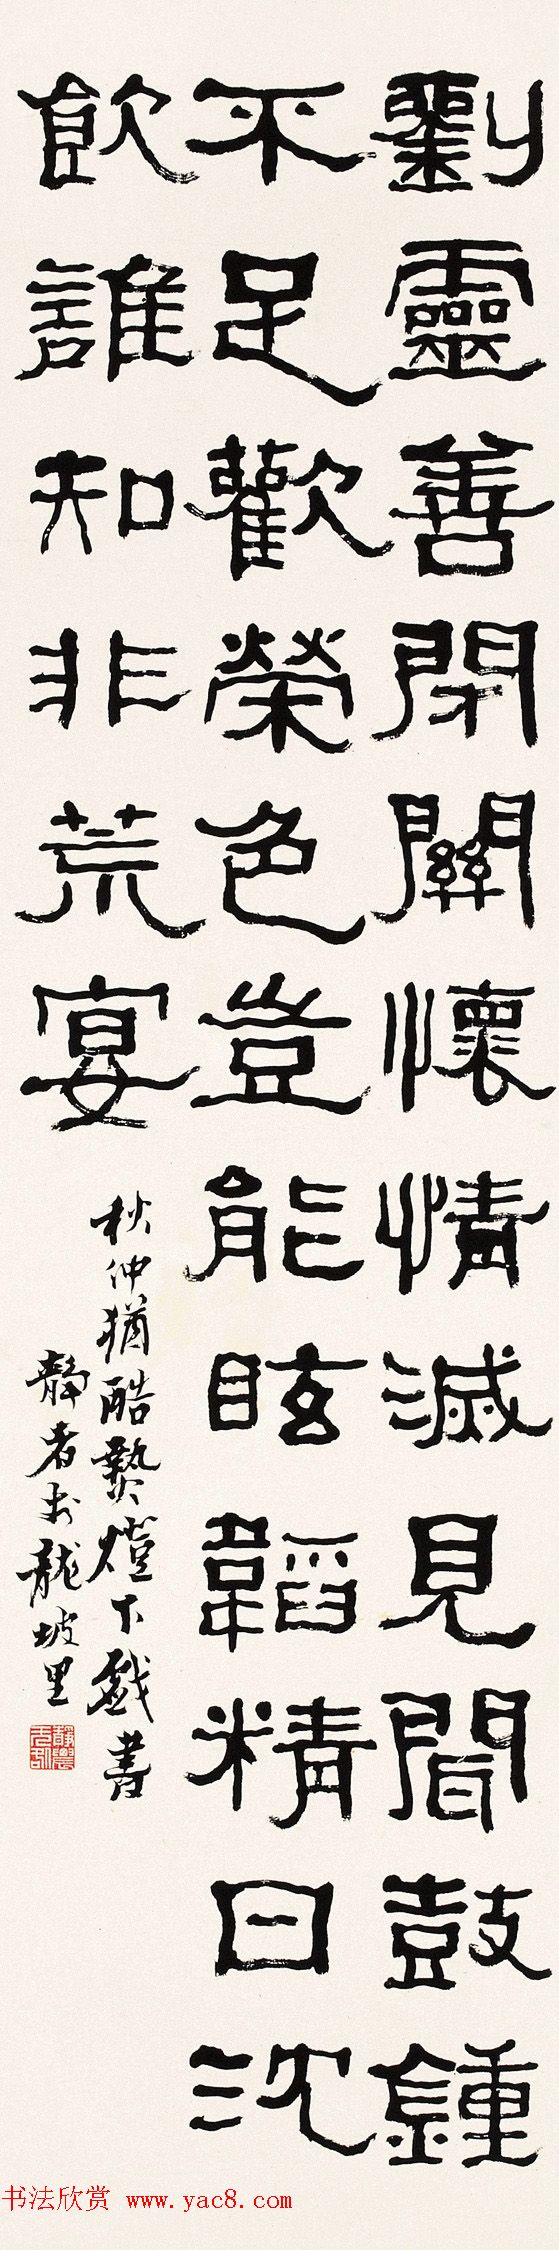 劉靈善閉關懷情滅見聞鼓鍾
不足歡榮色豈能眩韜精日沈
飲誰知非荒宴
秋仲猶酷熱燈下戲書
靜者於龍坡里
书法欣赏 www.yac8.com